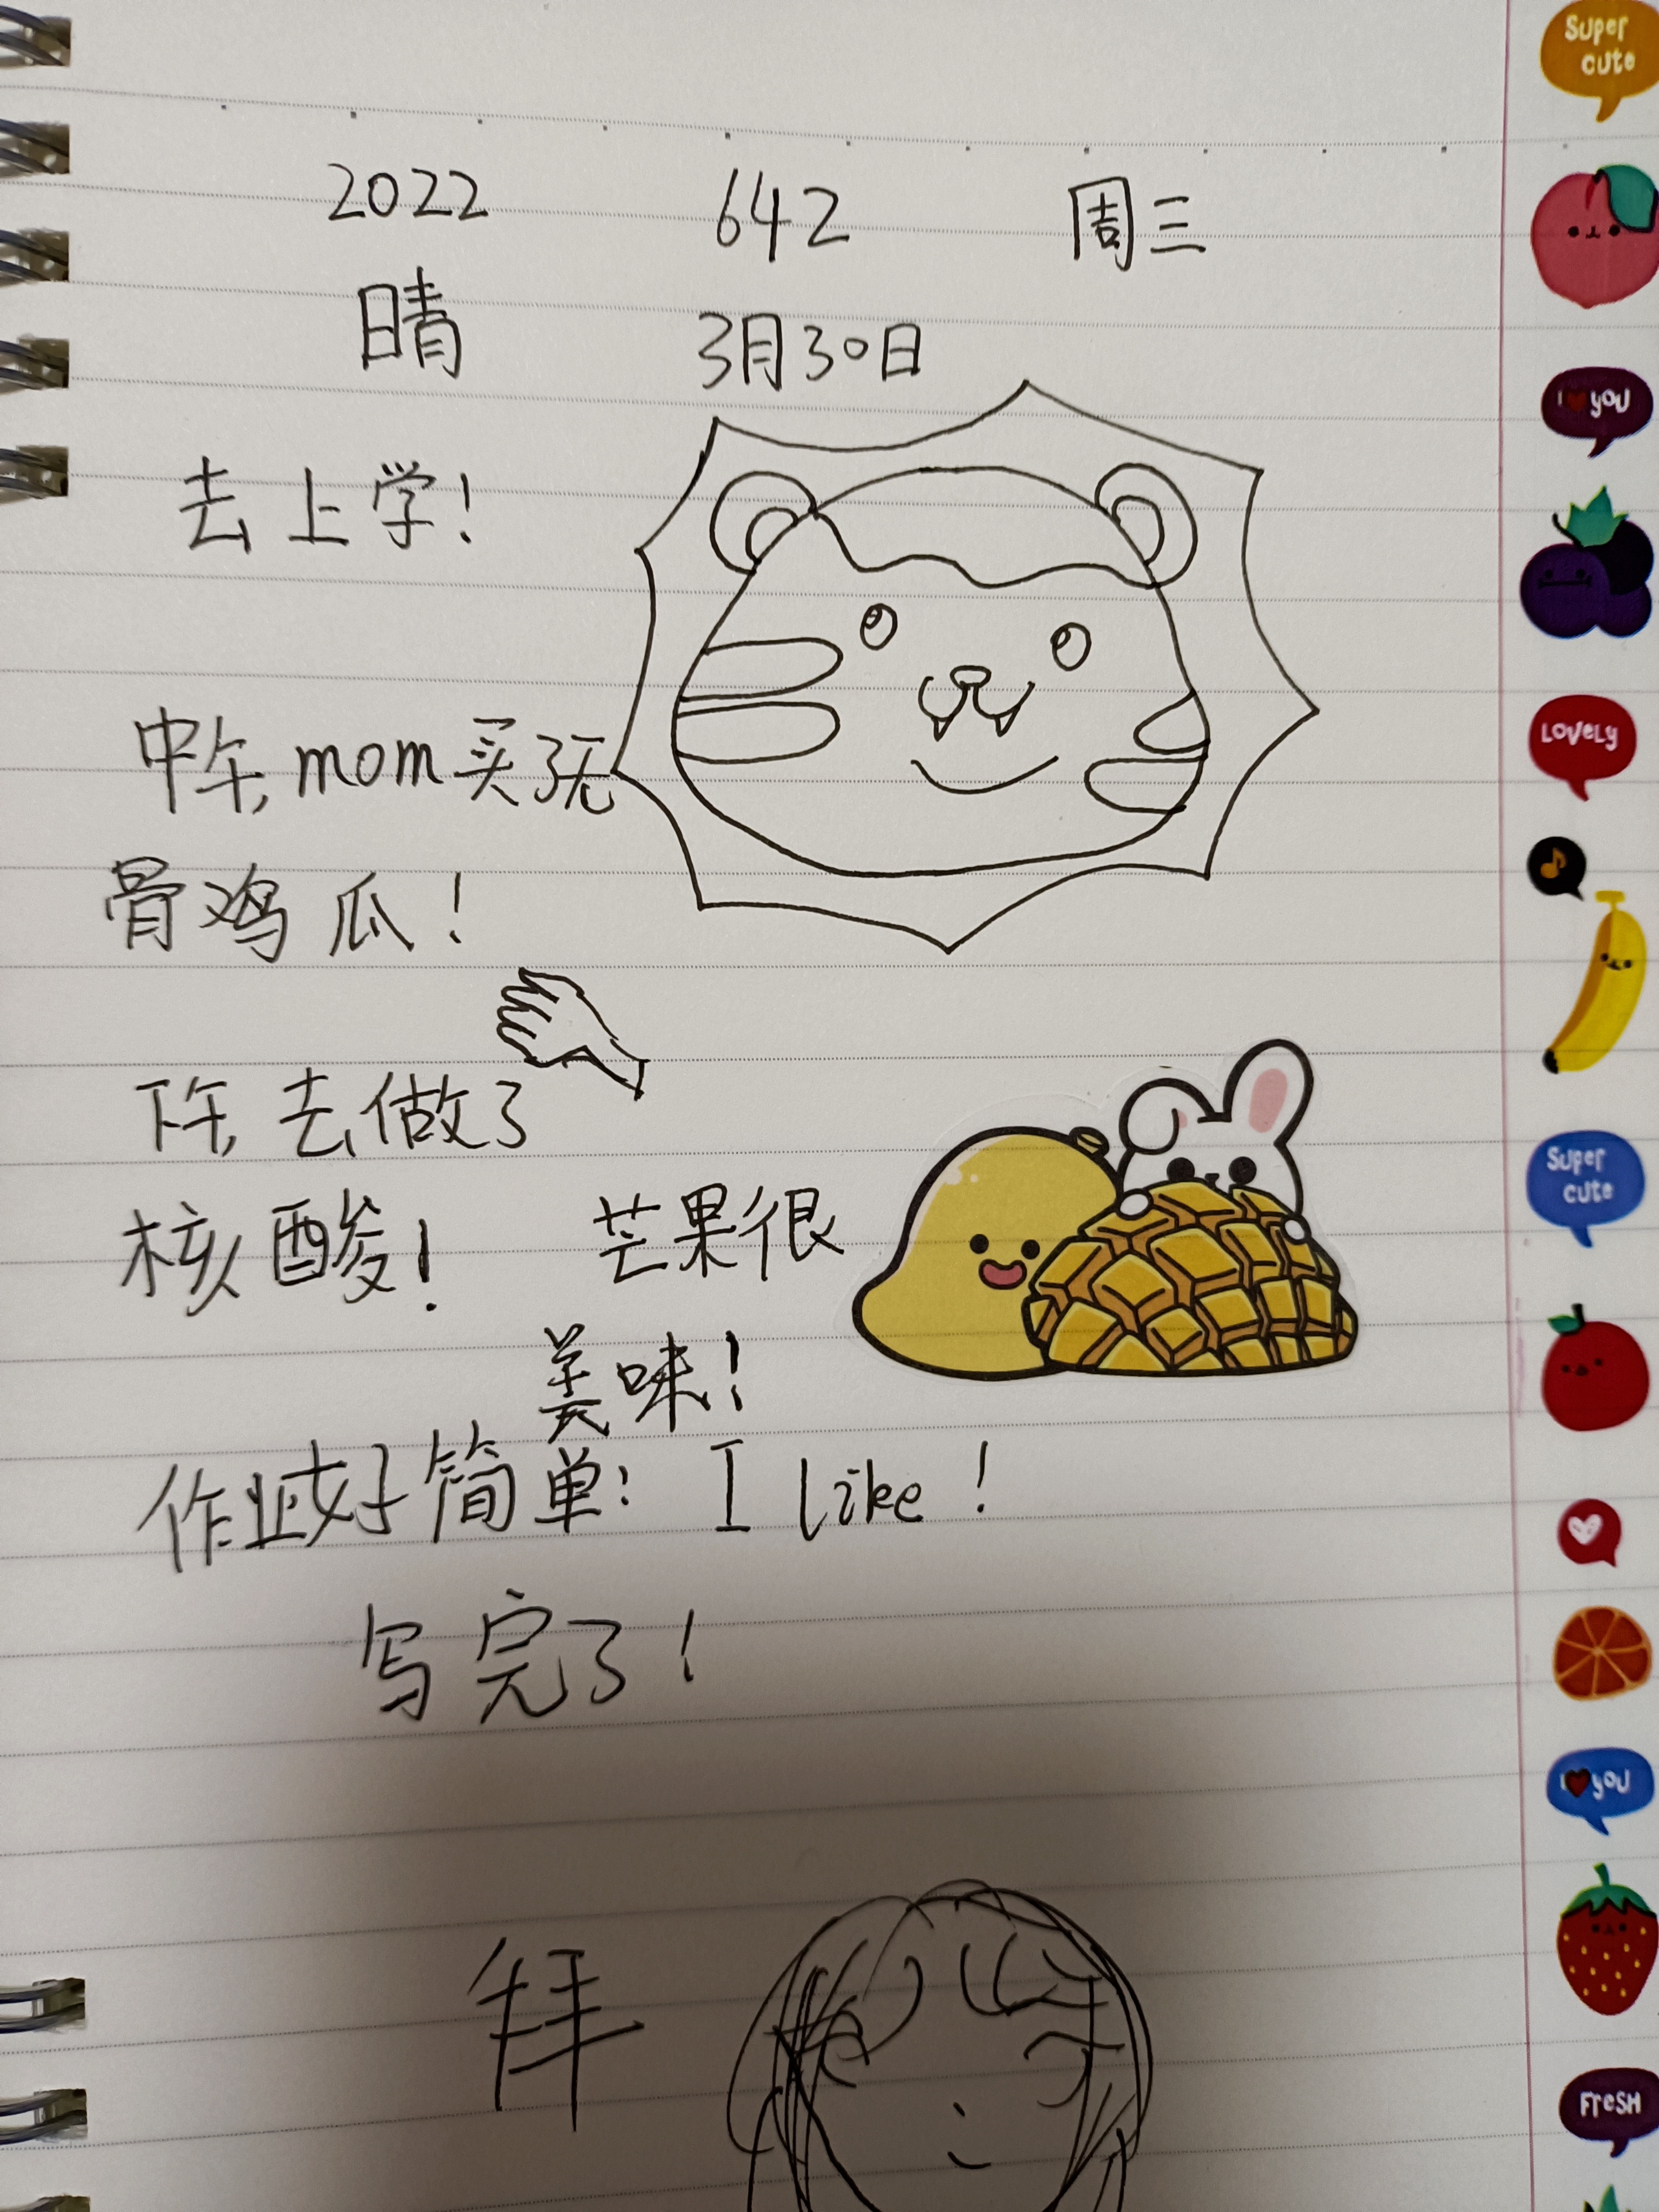 2022 642 周三
晴 3月30日
去上学！
中午，mom买了无
骨鸡瓜！
下午，去做了
核酸！
芒果很
美味！
作业好简单！ I like！
写完了！
拜
Super
cute
I ❤ you
LOVELY
Super
cute
I ❤ you
FreSH